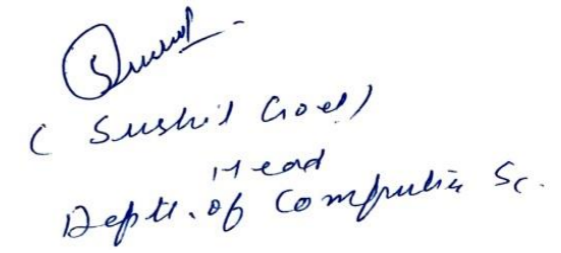 ( Sushil Goel )
Head
Deptt. of Computer Sc.